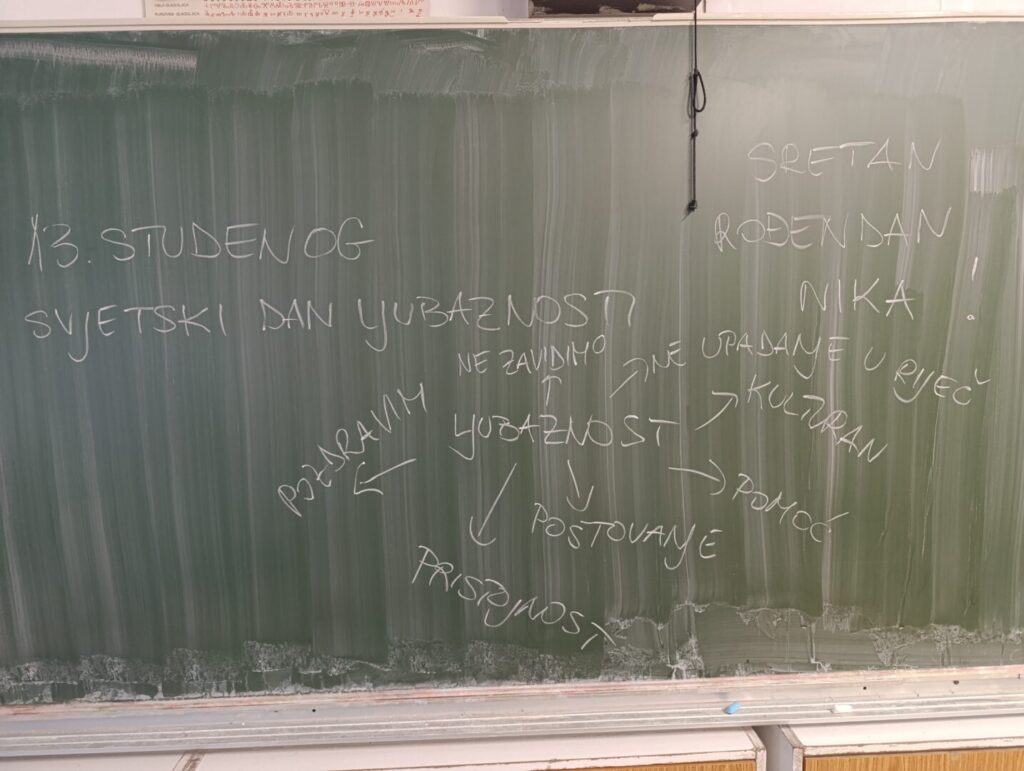 13. STUDENOG
SVJETSKI DAN LJUBAZNOSTI
SRETAN
ROĐENDAN
NIKA!
NE ZAVIDIMO
NE UPADANJE U RIJEČ
KULTURAN
LJUBAZNOST
POZDRAVIM
POMOĆ
POSTOVANJE
PRISTOJNOST